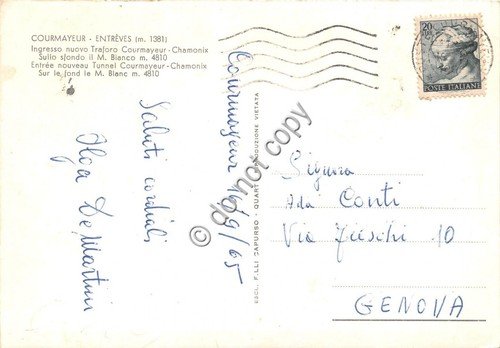 COURMAYEUR - ENTRÈVES (m. 1381)
Ingresso nuovo Traforo Courmayeur-Chamonix
Sullo sfondo il M. Bianco m. 4810
Entrée nouveau Tunnel Courmayeur-Chamonix
Sur le fond le M. Blanc m. 4810
Courmayeur 16/9/65
Saluti cordiali
Ilga De Martini
EDCL. F.LLI CAPURSO - QUART - RIPRODUZIONE VIETATA
POSTE ITALIANE
Signora
Ada Conti
Via Fieschi 10
GENOVA
© do not copy